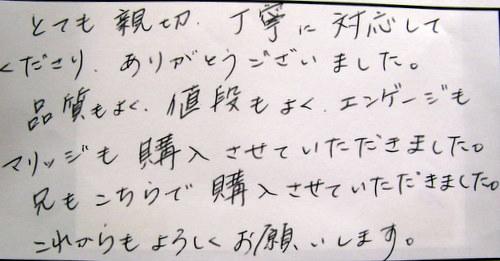 とても親切、丁寧に対応して
くださり、ありがとうございました。
品質もよく、値段もよく、エンゲージも
マリッジも購入させていただきました。
兄もこちらで購入させていただきました。
これからもよろしくお願いします。